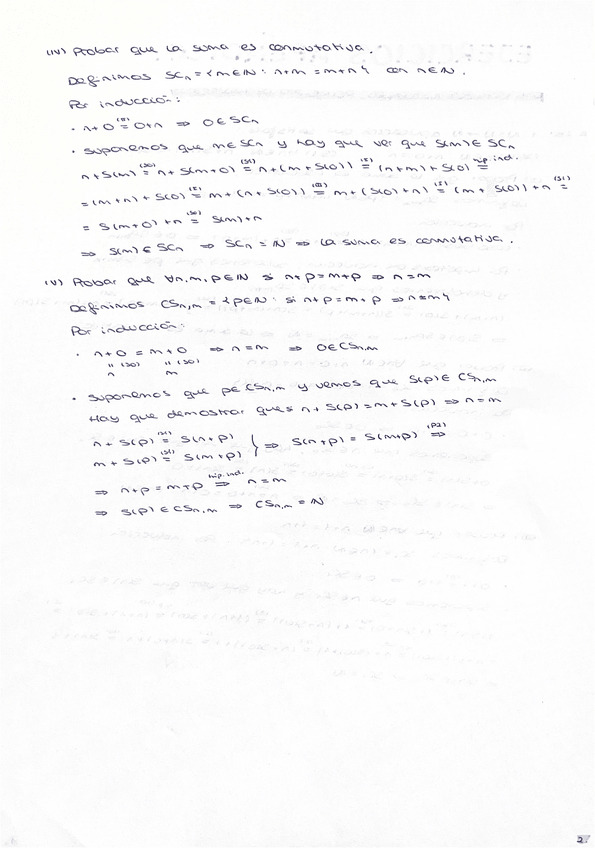 (iv) Probar que la suma es conmutativa.
Definimos SCₙ = {m∈ℕ : n+m = m+n} con n∈ℕ.
Por inducción:
· n+0 =(II) 0+n ⇒ 0∈SCₙ
· Suponemos que m∈SCₙ y hay que ver que S(m)∈SCₙ
n+S(m) =(S0) n+S(m+0) =(S1) n+(m+S(0)) =(I) (n+m)+S(0) =hip.ind.
=(m+n)+S(0) =(I) m+(n+S(0)) =(III) m+(S(0)+n) =(I) (m+S(0))+n =(S1)
= S(m+0)+n =(S0) S(m)+n
⇒ S(m)∈SCₙ ⇒ SCₙ = ℕ ⇒ La suma es conmutativa.
(v) Probar que ∀n,m,p∈ℕ si n+p=m+p ⇒ n=m
Definimos CSₙ,ₘ = {p∈ℕ : si n+p=m+p ⇒ n=m}
Por inducción:
· n+0 = m+0 ⇒ n=m ⇒ 0∈CSₙ,ₘ
" (S0) " (S0)
n m
· Suponemos que p∈CSₙ,ₘ y vemos que S(p)∈CSₙ,ₘ
Hay que demostrar que: n+S(p)=m+S(p) ⇒ n=m
n+S(p) =(S1) S(n+p)
m+S(p) =(S1) S(m+p) } ⇒ S(n+p) = S(m+p) ⇒(P2)
⇒ n+p=m+p ⇒hip.ind. n=m
⇒ S(p)∈CSₙ,ₘ ⇒ CSₙ,ₘ = ℕ
2